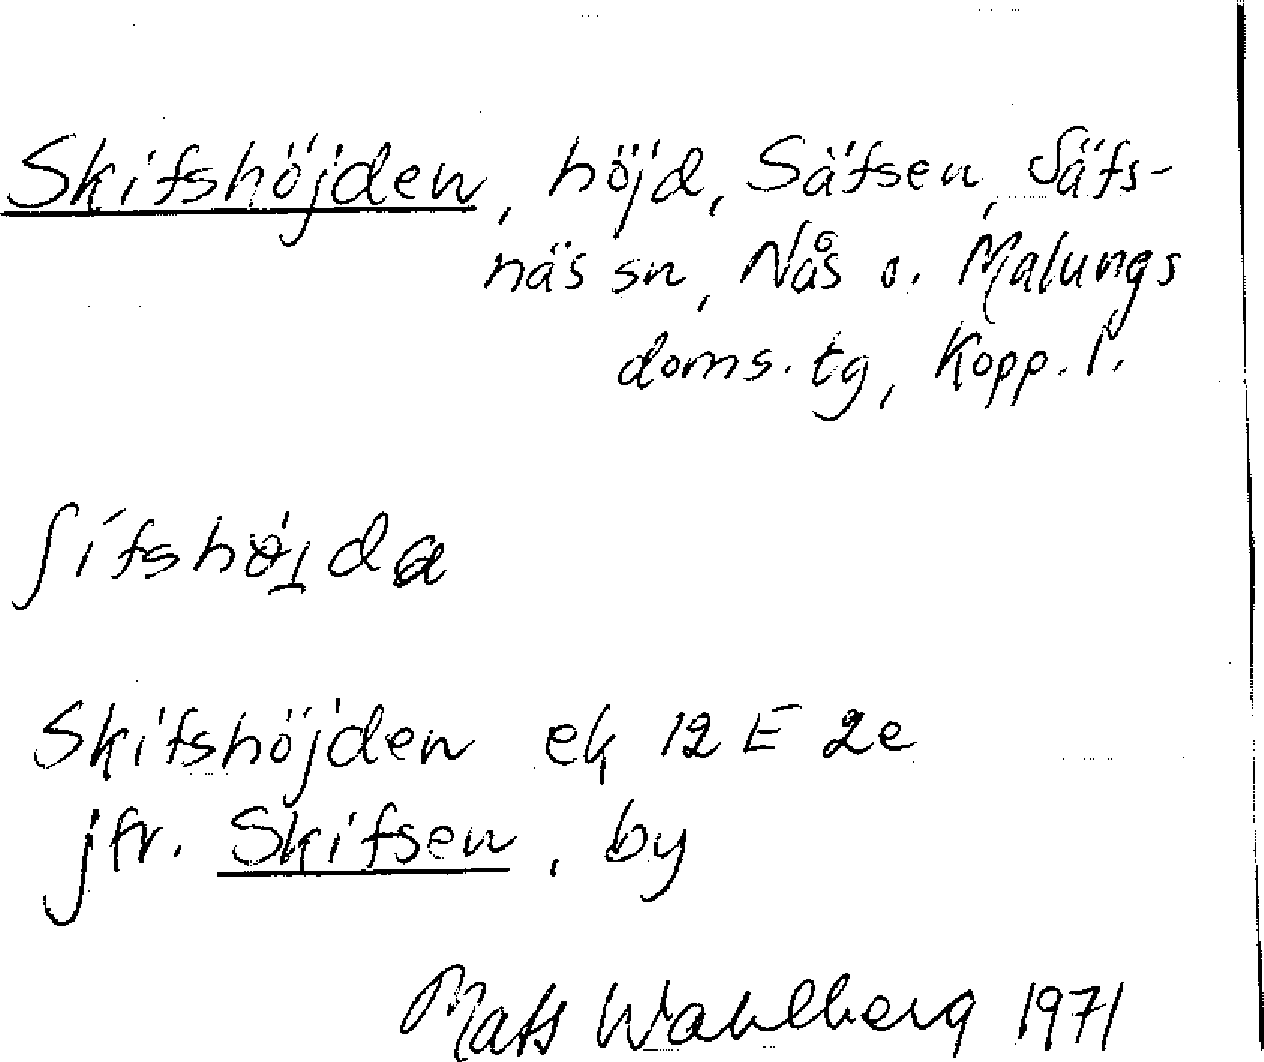 Skifshöjden, höjd, Säfsen, Säfs-
näs sn, Nås o. Malungs
doms. tg, Kopp. l.
Skifshöjden ek 12 E 2e
jfr. Skifsen, by
Mats Wahlberg 1971